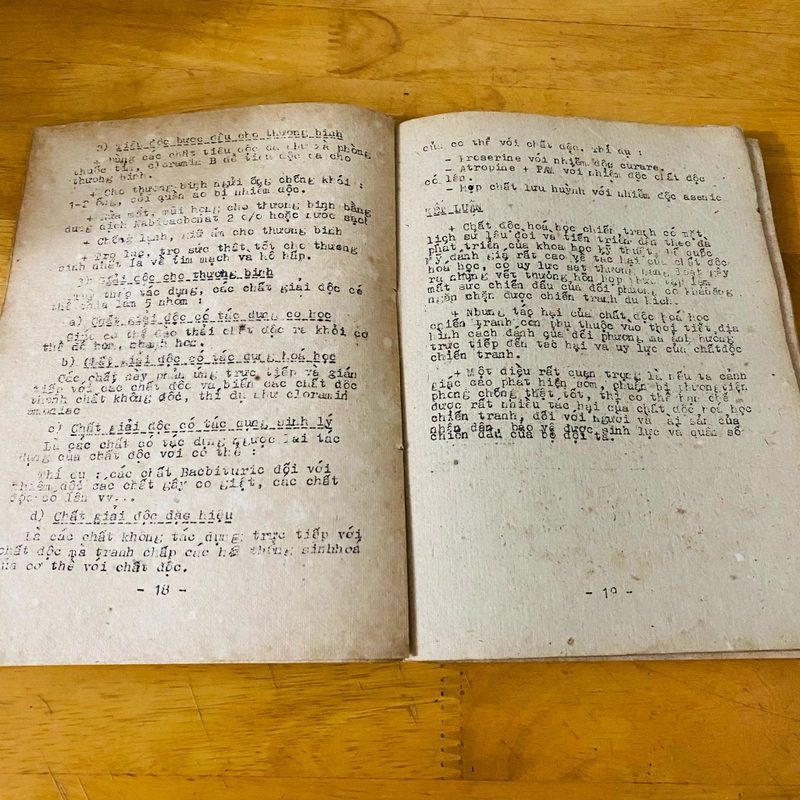 2) Tiết độc bước đầu cho thương binh
+ Dùng các chất tiêu độc da như xà phòng
thuốc tím, cloramin B để tiêu độc da cho
thương binh.
+ Cho thương binh ngửi ống chống khói :
1-2 ống, cởi quần áo bị nhiễm độc.
+ Rửa mắt, mũi họng cho thương binh bằng
dung dịch Nabicacbonat 2 c/o hoặc nước sạch
+ Chống lạnh, giữ ấm cho thương binh
+ Trợ lực, trợ sức thật tốt cho thương
binh nhất là về tim mạch và hô hấp.
3) Giải độc cho thương binh
Tuỳ theo tác dụng, các chất giải độc có
thể chia làm 5 nhóm :
a) Chất giải độc có tác dụng cơ học
Giúp cơ thể đào thải chất độc ra khỏi cơ
thể dễ hơn, nhanh hơn.
b) Chất giải độc có tác dụng hoá học
Các chất này phản ứng trực tiếp và gián
tiếp với các chất độc và biến các chất độc
thành chất không độc, thí dụ như cloramin
amoniac
c) Chất giải độc có tác dụng sinh lý
Là các chất có tác dụng ngược lại tác
dụng của chất độc với cơ thể :
Thí dụ : các chất Bacbituric đối với
nhiễm độc các chất gây co giật, các chất
độc có lân vv...
d) Chất giải độc đặc hiệu
Là các chất không tác dụng trực tiếp với
chất độc mà tranh chấp các hệ thống sinh hoá
của cơ thể với chất độc.
- 18 -
của cơ thể với chất độc. Thí dụ :
- Proserine với nhiễm độc curare.
- Atropine + PAM với nhiễm độc chất độc
có lân.
- Hợp chất lưu huỳnh với nhiễm độc asenic
KẾT LUẬN
+ Chất độc hoá học chiến tranh có một
lịch sử lâu đời và tiến triển dần theo đà
phát triển của khoa học kỹ thuật. Đế quốc
Mỹ đánh giá rất cao về tác hại của chất độc
hoá học, có uy lực sát thương hàng loạt gây
ra những vết thương hỗn hợp phức tạp làm
mất sức chiến đấu của đối phương có khả năng
ngăn chặn được chiến tranh du kích.
+ Nhưng tác hại của chất độc hoá học
chiến tranh còn phụ thuộc vào thời tiết địa
hình cách đánh của đối phương mà ảnh hưởng
trực tiếp đến tác hại và uy lực của chất độc
chiến tranh.
+ Một điều rất quan trọng là nếu ta cảnh
giác cao phát hiện sớm, chuẩn bị phương tiện
phòng chống thật tốt, thì có thể hạn chế
được rất nhiều tác hại của chất độc hoá học
chiến tranh, đối với người và tài sản của
nhân dân, bảo vệ được sinh lực và quân số
chiến đấu của bộ đội ta.
- 19 -